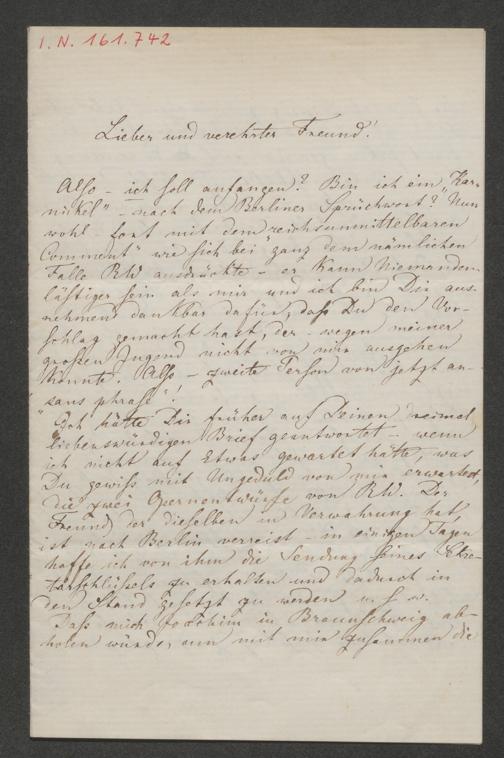 I. N. 161.742
Lieber und verehrter Freund!
Also – ich soll anfangen? Bin ich ein „Kar-
nickel" – nach dem Berliner Sprüchwort? Nun
wohl – fort mit dem reichsunmittelbaren
Comment" wie sich bei ganz dem nämlichen
Falle RW ausdrückte – er kann Niemanden
lästiger sein als mir und ich bin Dir aus-
nehmend dankbar dafür, daß Du den Vor-
schlag gemacht hast, der – wegen meiner
großen Jugend nicht von mir ausgehen
konnte. Also – zweite Person von jetzt an –
„sans phrase"!
Ich hätte Dir früher auf Deinen dreimal
liebenswürdigen Brief geantwortet – wenn
ich nicht auf Etwas gewartet hätte, was
Du gewiss mit Ungeduld von mir erwartest,
die zwei Opernentwürfe von RW. Der
Freund, der dieselben in Verwahrung hat,
ist nach Berlin verreist – in einigen Tagen
hoffe ich von ihm die Sendung seines
zu erhalten und dadurch in
den Stand gesetzt zu werden u. s. w.
Daß mich Joachim in Braunschweig ab-
holen würde, um mit mir zusammen die